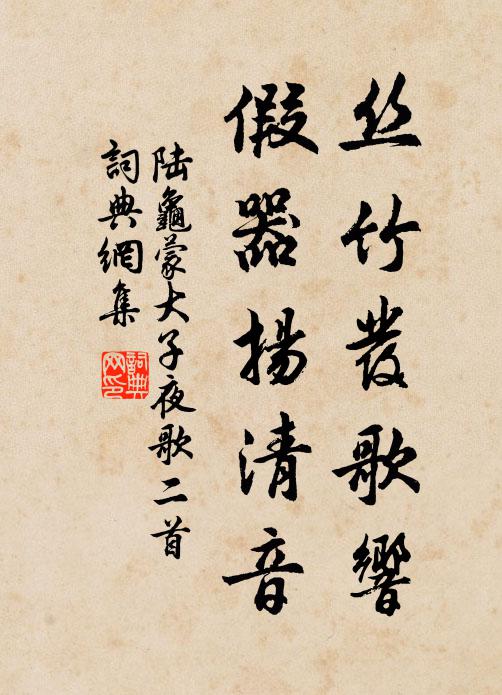 丝竹发歌響
假器揚清音
陆龜蒙大子夜歌二首
詞典網集
詞典网印